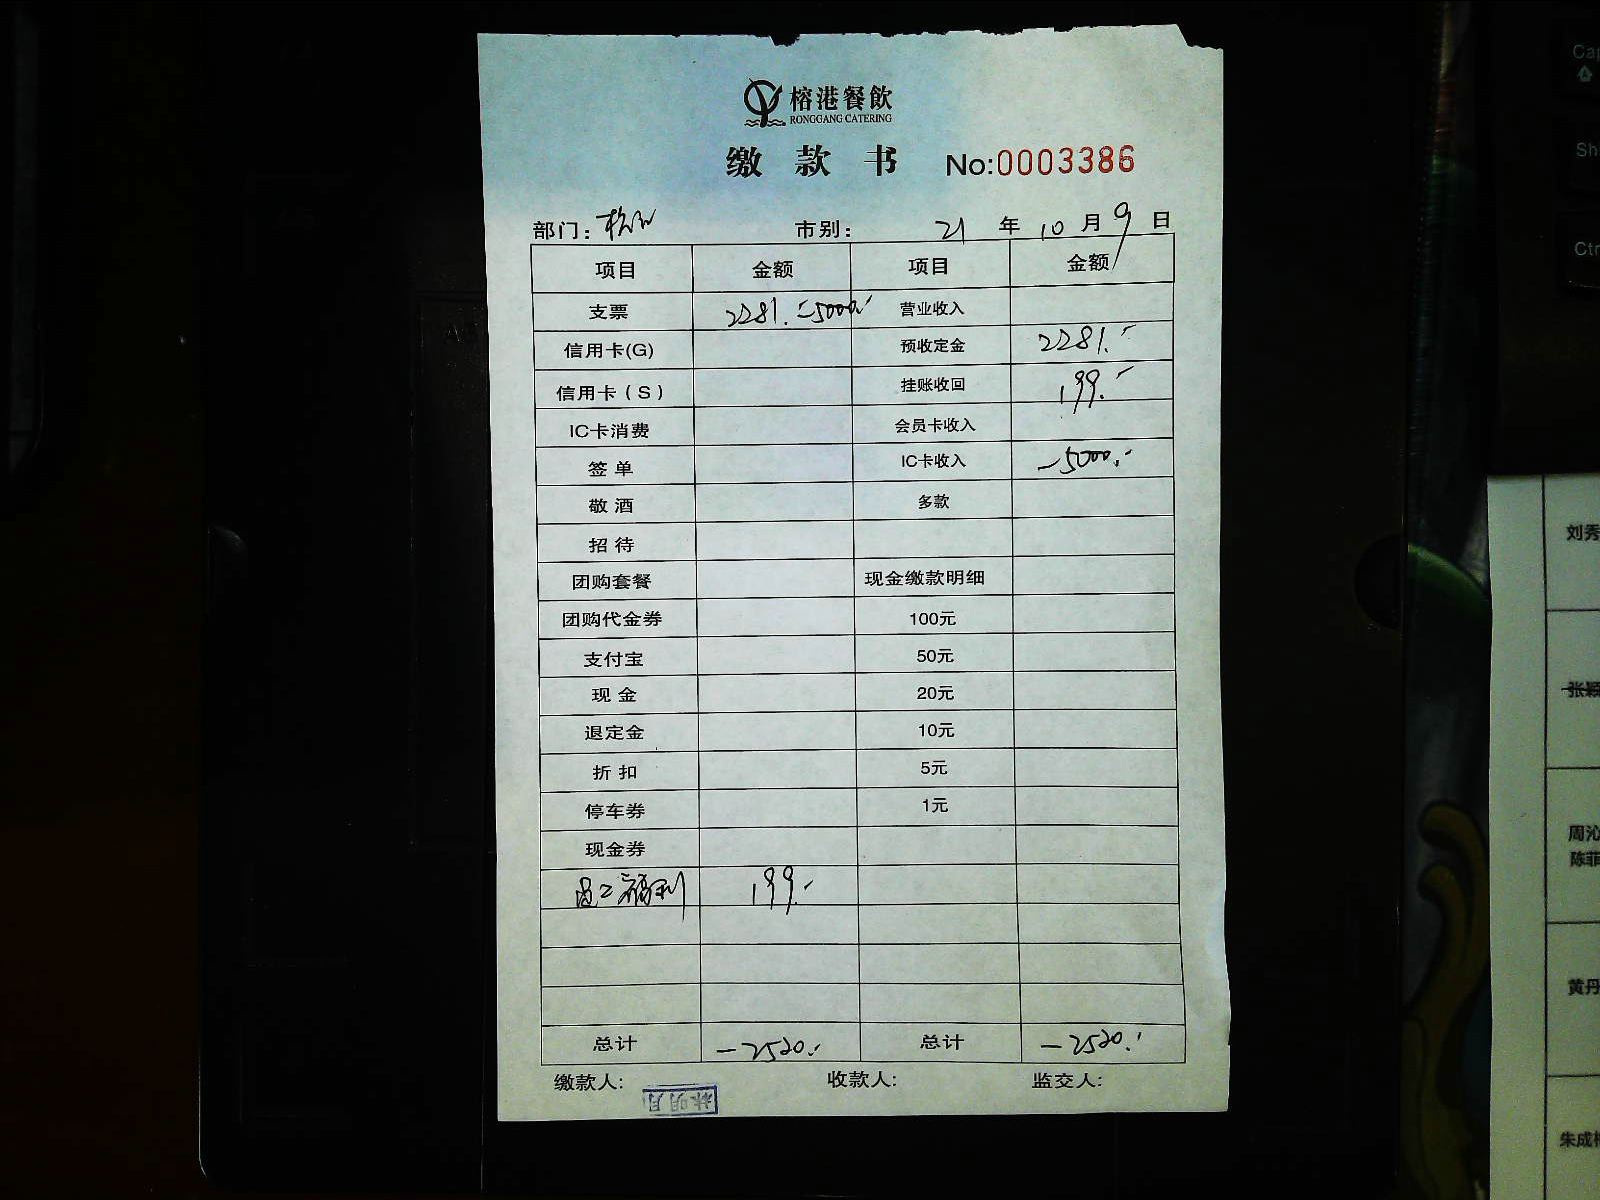 榕港餐飲
RONGGANG CATERING
缴款书 No:0003386
部门: 市别: 21 年 10 月 9 日
项目 金额 项目 金额
支票 2281.- -5000.- 营业收入
信用卡(G) 预收定金 2281.-
信用卡(S) 挂账收回 199.-
IC卡消费 会员卡收入
签单 IC卡收入 -5000.-
敬酒 多款
招待
团购套餐 现金缴款明细
团购代金券 100元
支付宝 50元
现金 20元
退定金 10元
折扣 5元
停车券 1元
现金券
福利 199.-
总计 -2520.- 总计 -2520.-
缴款人: 林明月 收款人: 监交人:
Cap
Sh
Ctr
刘秀
张颖
周沁
陈菲
黄丹
朱成